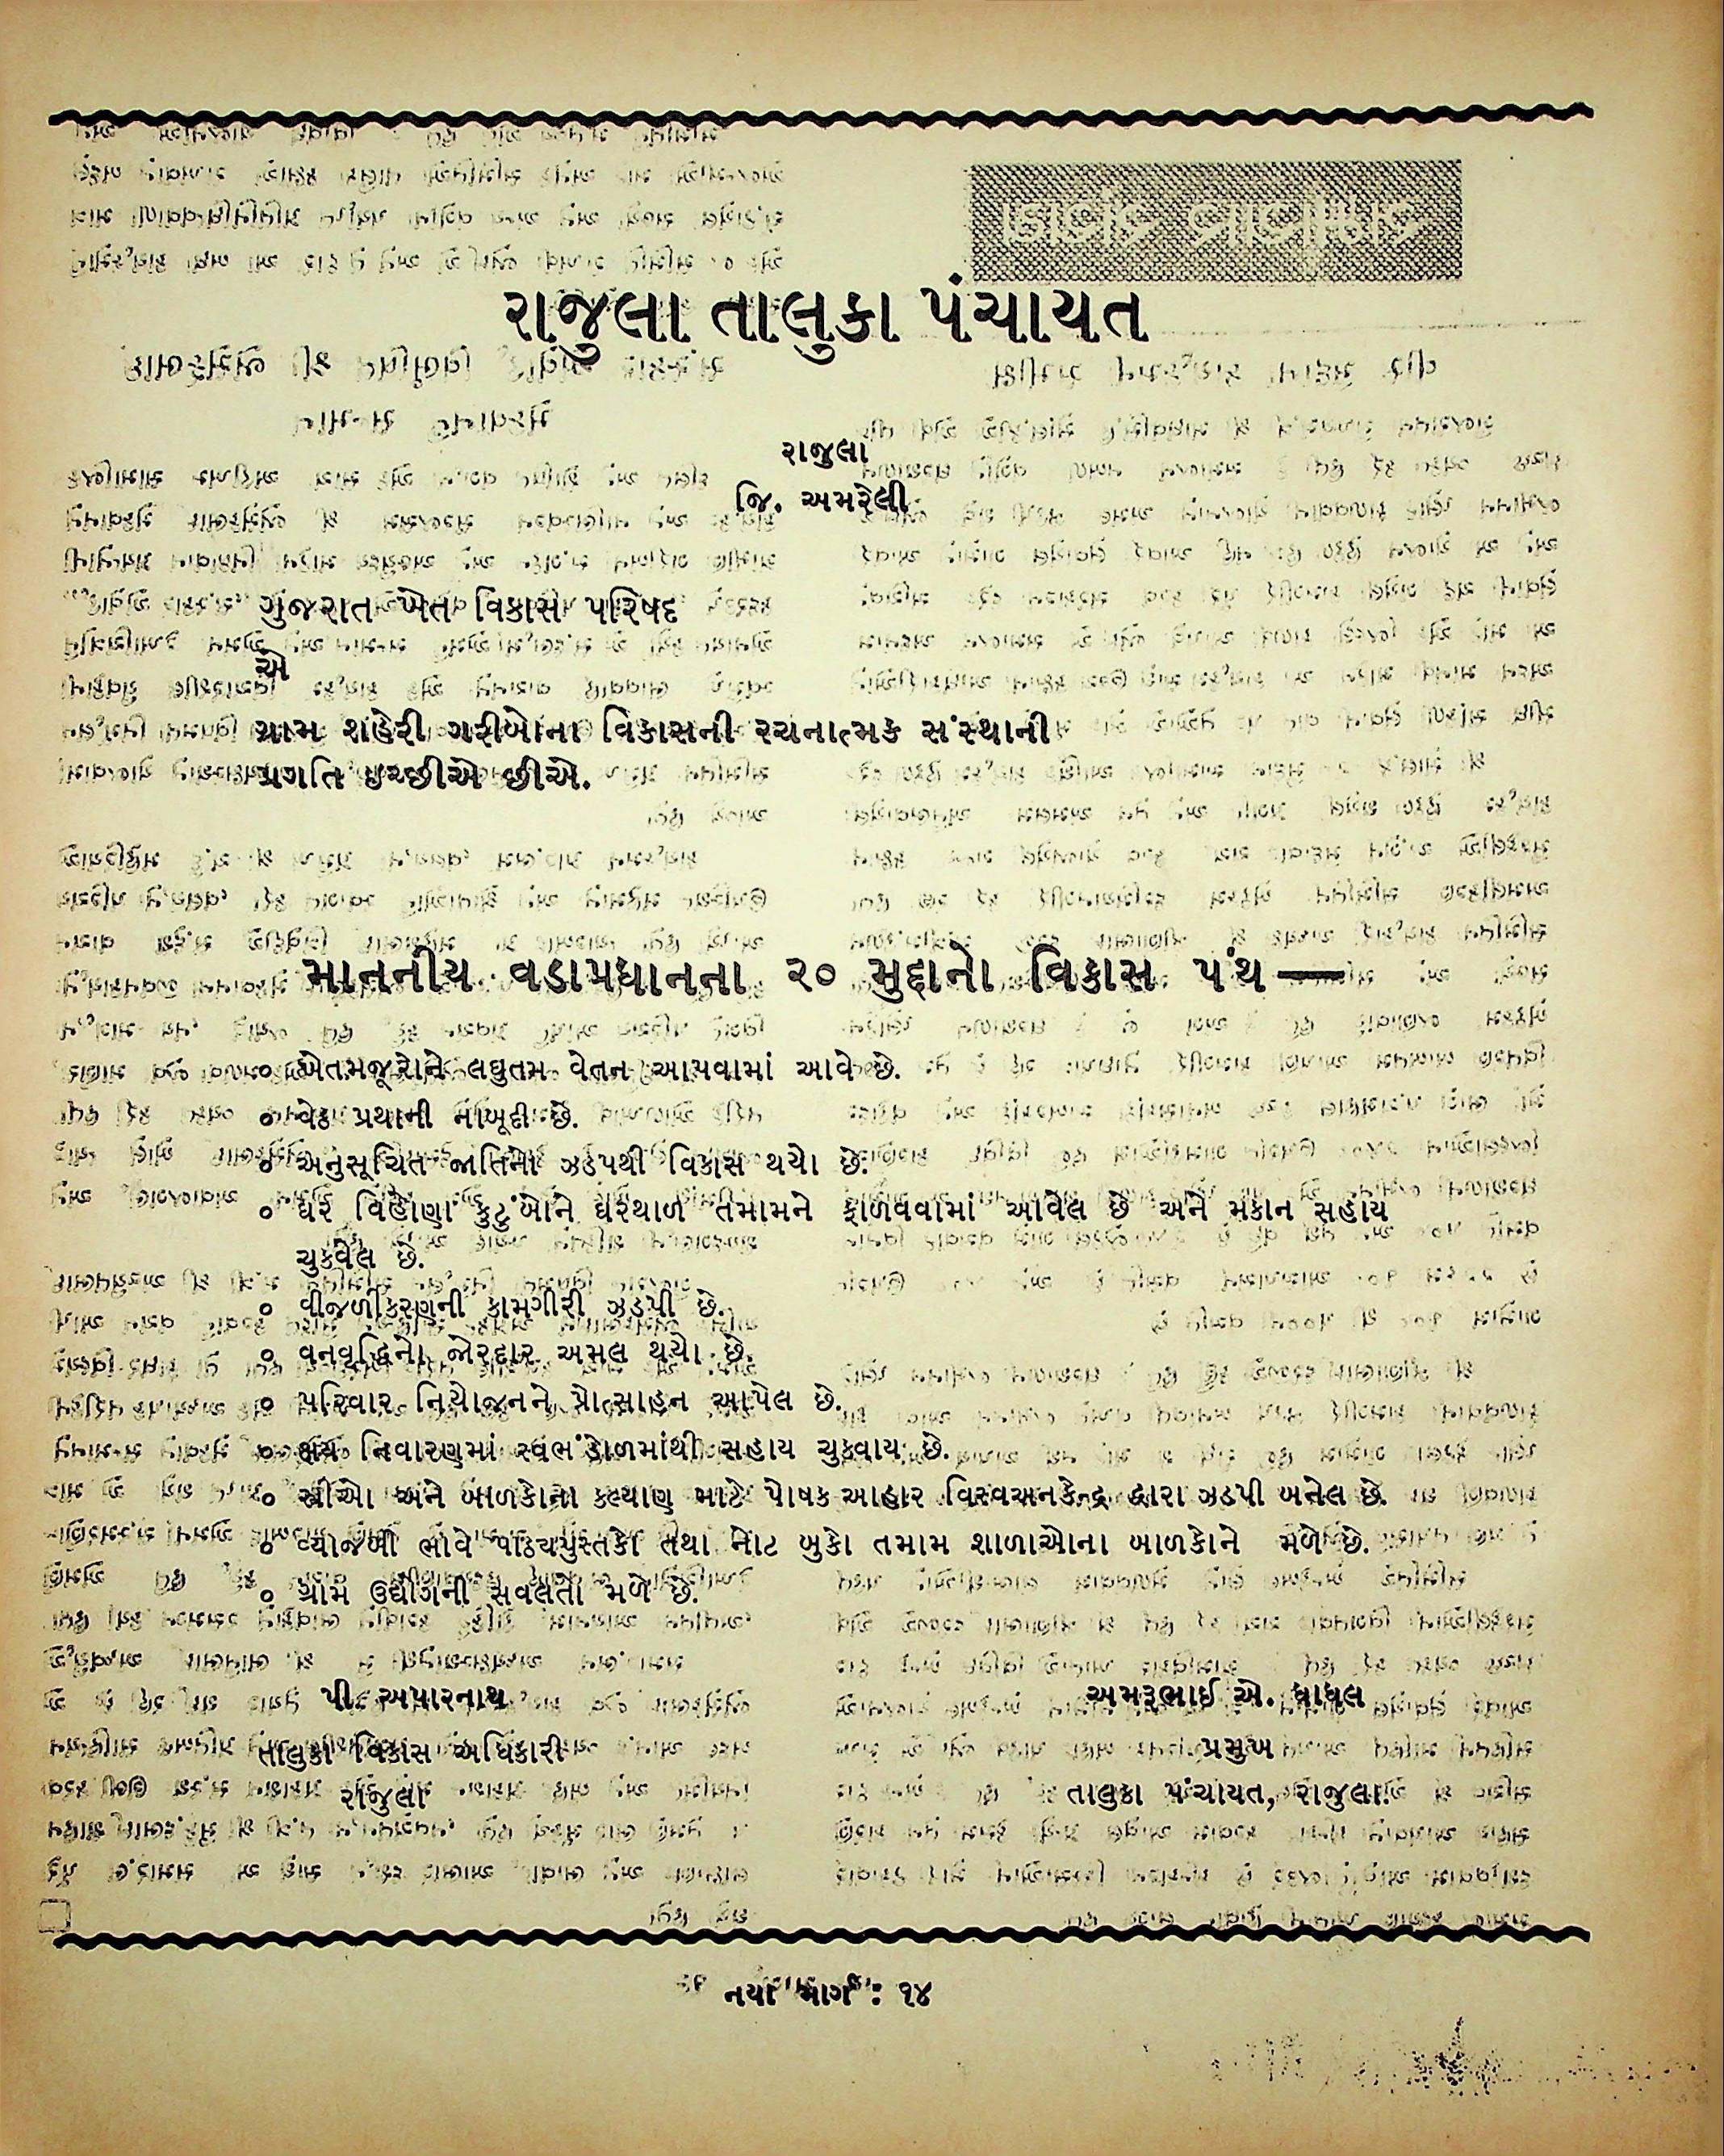 રાજુલા તાલુકા પંચાયત
રાજુલા
જિ. અમરેલી
ગુજરાત ખેત વિકાસ પરિષદ
એ
ગ્રામ શહેરી ગરીબોના વિકાસની રચનાત્મક સંસ્થાની
પ્રગતિ ઇચ્છીએ છીએ.
માનનીય વડાપ્રધાનના ૨૦ મુદ્દાનો વિકાસ પંથ —
૦ ખેતમજૂરોને લઘુતમ વેતન આપવામાં આવે છે.
૦ વેઠ પ્રથાની નાબૂદી છે.
૦ અનુસૂચિત જાતિનો ઝડપથી વિકાસ થયો છે.
૦ ઘર વિહોણા કુટુંબોને ઘરથાળ તમામને ફાળવવામાં આવેલ છે અને મકાન સહાય
ચુકવેલ છે.
૦ વીજળીકરણની કામગીરી ઝડપી છે.
૦ વનવૃદ્ધિનો જોરદાર અમલ થયો છે.
૦ પરિવાર નિયોજનને પ્રોત્સાહન આપેલ છે.
૦ ક્ષય નિવારણમાં સ્વભંડોળમાંથી સહાય ચુકવાય છે.
૦ સ્ત્રીઓ અને બાળકોના કલ્યાણ માટે પોષક આહાર દ્વારા ઝડપી બનેલ છે.
૦ વ્યાજબી ભાવે પાઠ્યપુસ્તકો તથા નોટ બુકો તમામ શાળાઓના બાળકોને મળે છે.
૦ ગ્રામ ઉદ્યોગની સવલતો મળે છે.
પી. અપારનાથ
તાલુકા વિકાસ અધિકારી
રાજુલા
અમરૂભાઈ એ. ધાધલ
પ્રમુખ
તાલુકા પંચાયત, રાજુલા
નયા માર્ગ : ૧૪